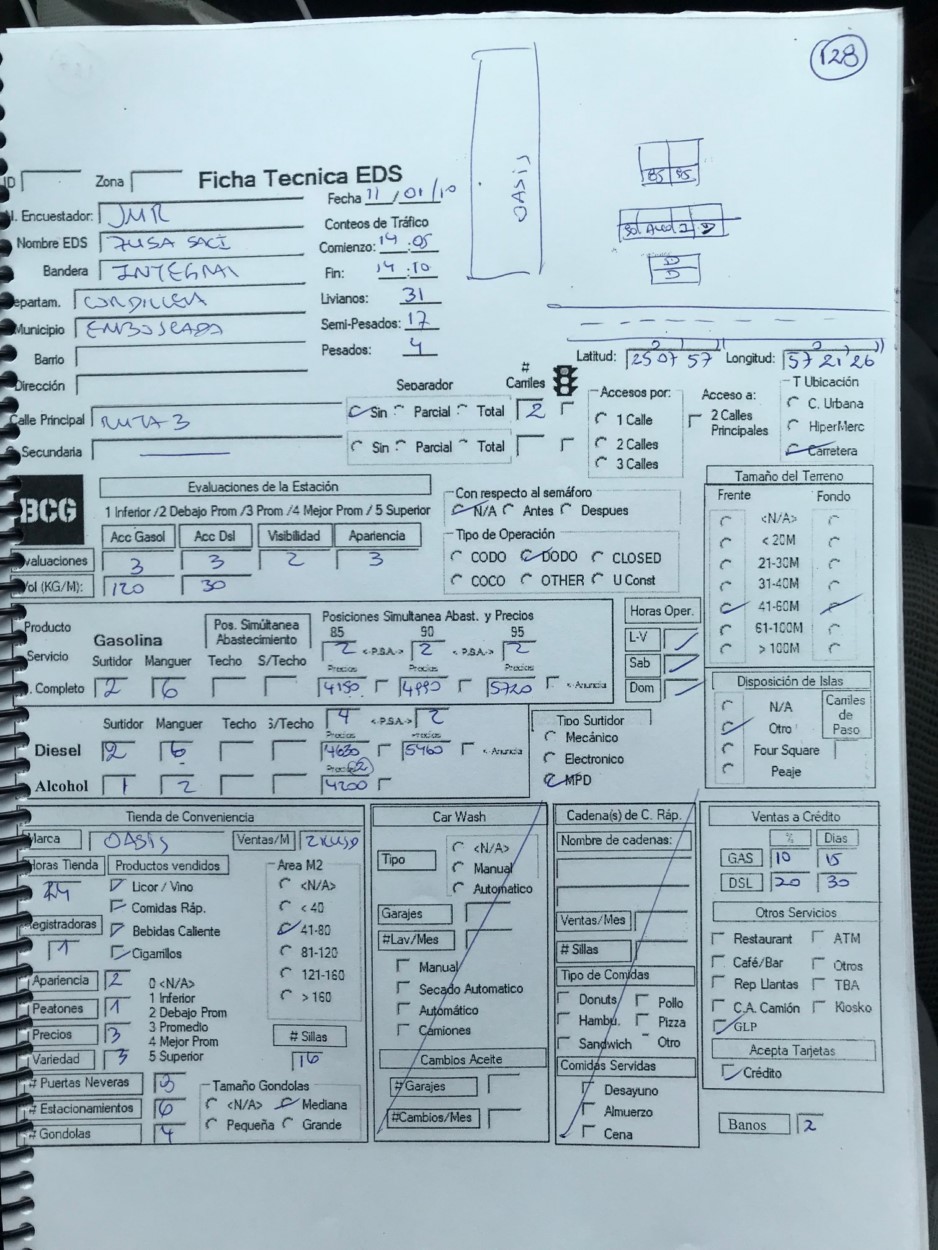 128
ID Zona Ficha Tecnica EDS
Fecha 11/01/10
N. Encuestador: JMR
Conteos de Tráfico
Nombre EDS FUSA SACI
Comienzo: 14:05
Bandera INTEGRAL
Fin: 14:10
Departam. CORDILLERA
Livianos: 31
Municipio EMBOSCADA
Semi-Pesados: 17
Barrio
Pesados: 4
Dirección
OASIS
85 95
D
D
Latitud: 25 07 57 Longitud: 57 21 26
Calle Principal RUTA 3
Separador # Carriles
Sin Parcial Total 2
Secundaria
Sin Parcial Total
Accesos por:
1 Calle
2 Calles
3 Calles
Acceso a:
2 Calles
Principales
T Ubicación
C. Urbana
HiperMerc
Carretera
BCG
Evaluaciones de la Estación
1 Inferior /2 Debajo Prom /3 Prom /4 Mejor Prom / 5 Superior
Acc Gasol Acc Dsl Visibilidad Apariencia
Evaluaciones 3 3 2 3
Vol (KG/M): 120 30
Con respecto al semáforo
N/A Antes Despues
Tipo de Operación
CODO DODO CLOSED
COCO OTHER U Const
Tamaño del Terreno
Frente Fondo
<N/A>
< 20M
21-30M
31-40M
41-60M
61-100M
> 100M
Producto
Servicio
Gasolina
Pos. Simúltanea
Abastecimiento
Posiciones Simultanea Abast. y Precios
85 90 95
2 <-P.S.A.-> 2 <-P.S.A.-> 2
Surtidor Manguer Techo S/Techo Precios Precios Precios
. Completo 2 6 4150 4990 5720 <-Anuncia
Horas Oper.
L-V
Sab
Dom
Surtidor Manguer Techo S/Techo 4 <-P.S.A.-> 2
Diesel 2 6 4630 5460 <-Anuncia
Precios 2
Alcohol 1 2 4200
Tipo Surtidor
Mecánico
Electronico
MPD
Disposición de Islas
N/A
Otro
Four Square
Peaje
Carriles
de
Paso
Tienda de Conveniencia
Marca OASIS Ventas/M
Horas Tienda Productos vendidos
24
Licor / Vino
Comidas Ráp.
Registradoras
Bebidas Caliente
1
Cigarrillos
Area M2
<N/A>
< 40
41-80
81-120
121-160
> 160
Apariencia 2
Peatones 1
Precios 3
Variedad 3
0 <N/A>
1 Inferior
2 Debajo Prom
3 Promedio
4 Mejor Prom
5 Superior
# Sillas
16
# Puertas Neveras 3
# Estacionamientos 6
# Gondolas 4
Tamaño Gondolas
<N/A> Mediana
Pequeña Grande
Car Wash
Tipo
<N/A>
Manual
Automatico
Garajes
#Lav/Mes
Manual
Secado Automatico
Automático
Camiones
Cambios Aceite
#Garajes
#Cambios/Mes
Cadena(s) de C. Ráp.
Nombre de cadenas:
Ventas/Mes
# Sillas
Tipo de Comidas
Donuts Pollo
Hambu. Pizza
Sandwich Otro
Comidas Servidas
Desayuno
Almuerzo
Cena
Ventas a Crédito
% Dias
GAS 10 15
DSL 20 30
Otros Servicios
Restaurant ATM
Café/Bar Otros
Rep Llantas TBA
C.A. Camión Kiosko
GLP
Acepta Tarjetas
Crédito
Banos 2